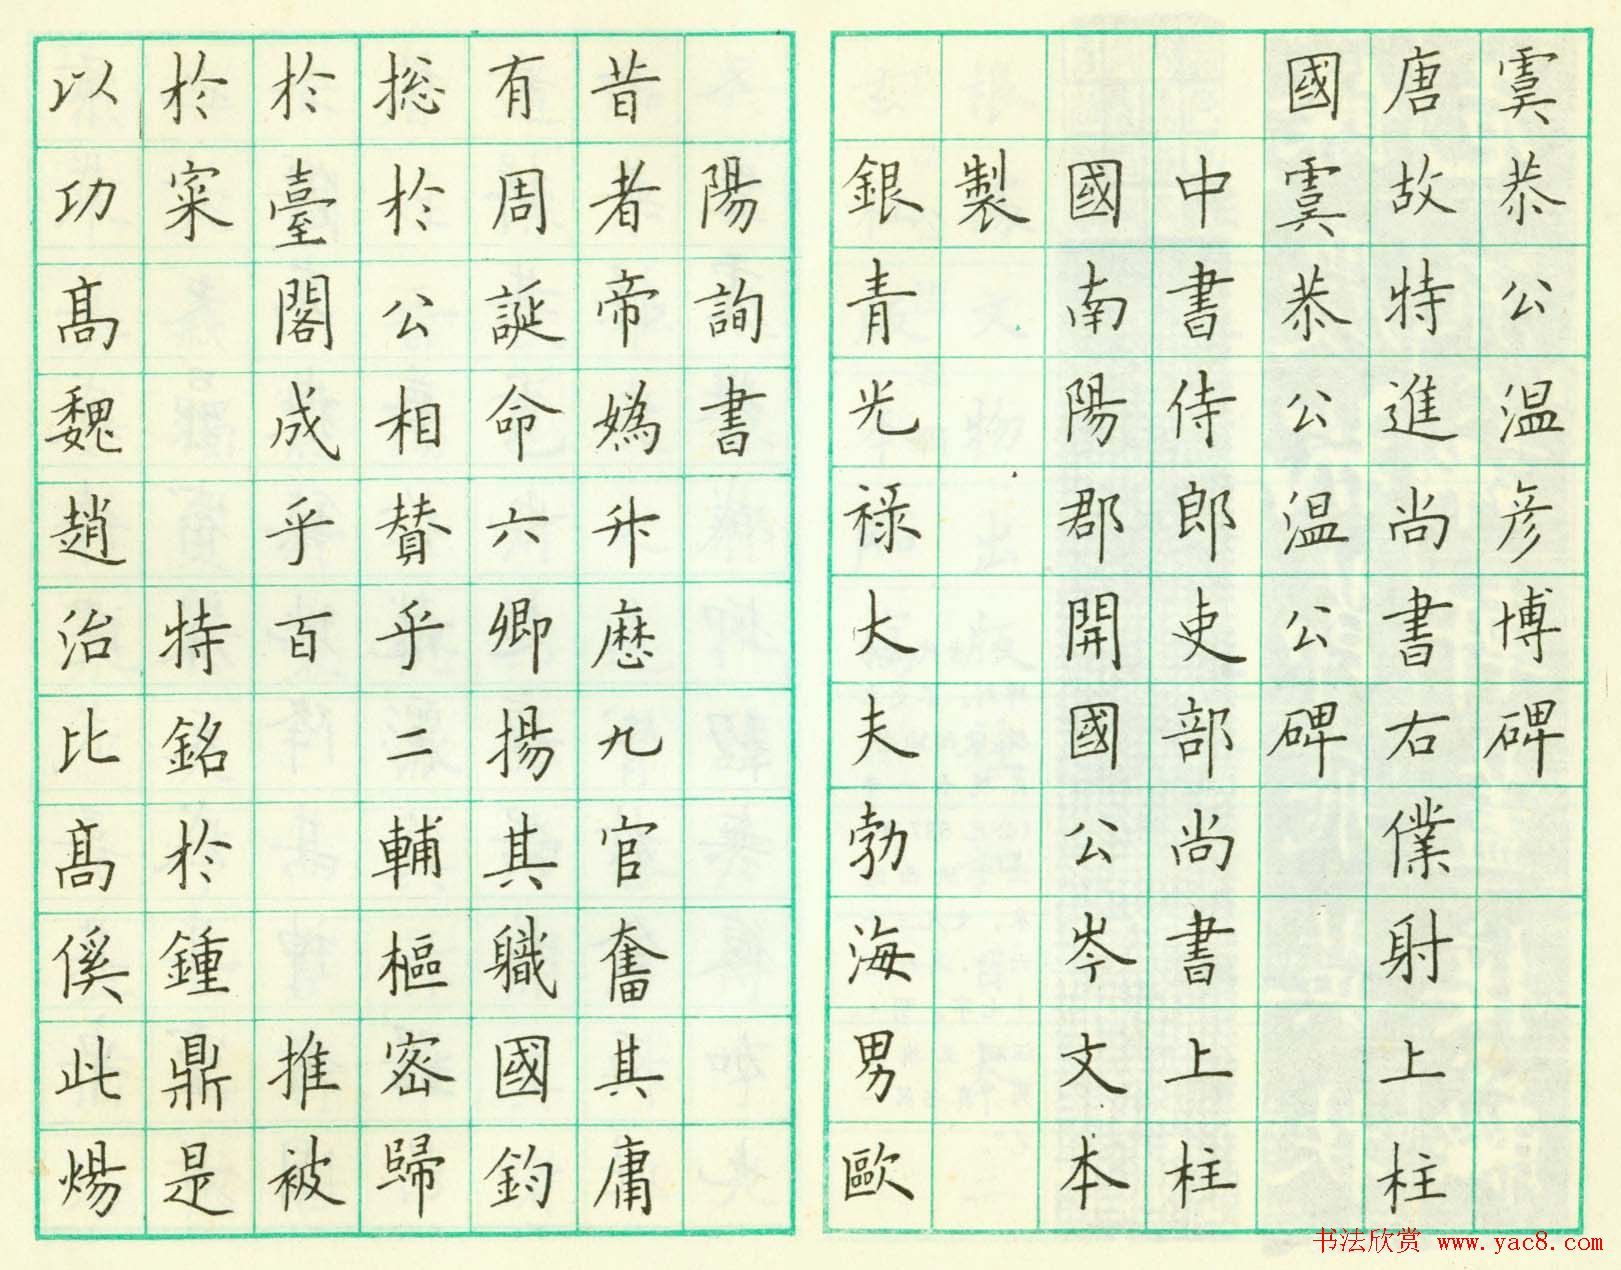 虞恭公温彦博碑
唐故特進尚書右僕射上柱
國虞恭公温公碑
中書侍郎吏部尚書上柱
國南陽郡開國公岑文本
製
銀青光禄大夫勃海男歐
陽詢書
昔者帝媯升厯九官奮其庸
有周誕命六卿揚其職國鈞
揔於公相賛乎二輔樞密歸
於臺閣成乎百推被
於寀特銘於鍾鼎是
以功髙魏趙治比髙傒此煬
书法欣赏 www.yac8.com